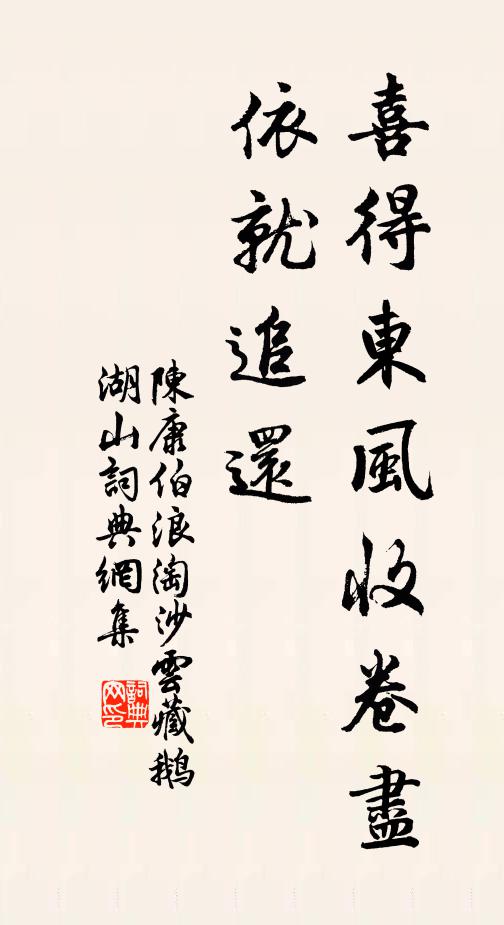 喜得東風收卷盡
依就追還
陳康伯浪淘沙雲藏鵝
湖山詞典網集
詞典网印